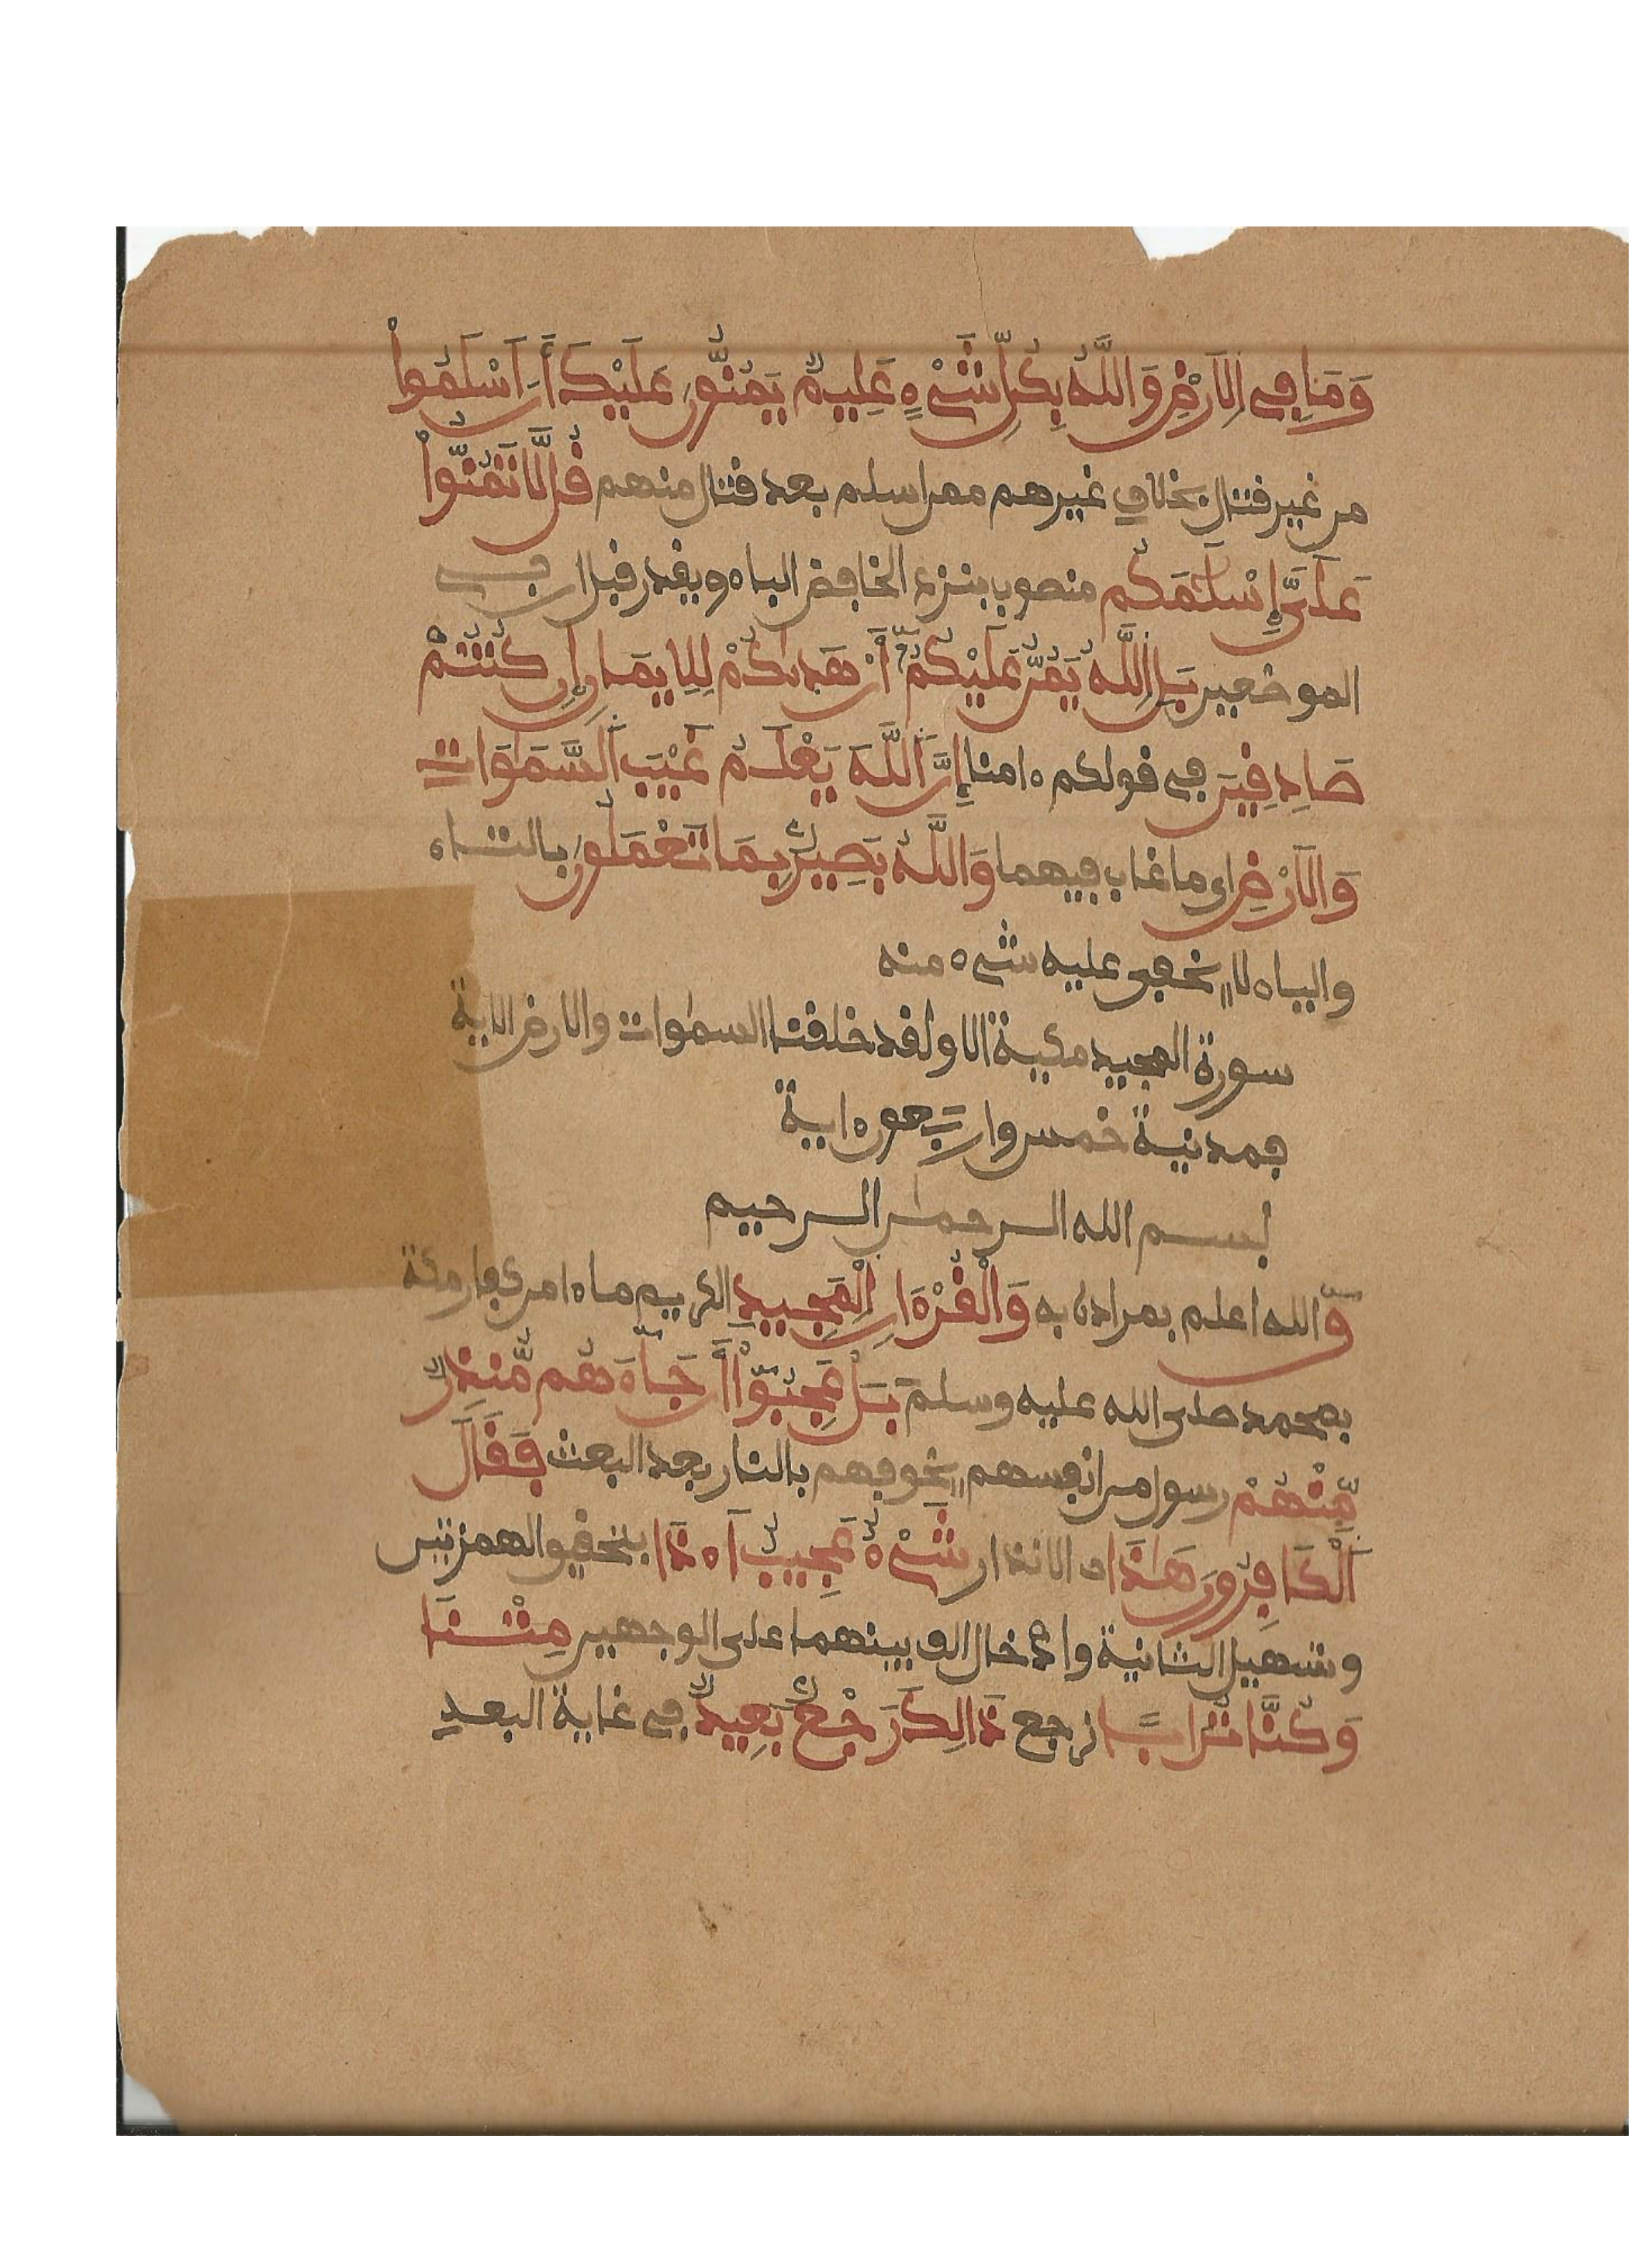 وَمَا فِي الَارْضِ وَاللَّهُ بِكُلِّ شَيْءٍ عَلِيمٌ يَمُنُّونَ عَلَيْكَ أَنَ اَسْلَمُواْ
من غير قتال بخلاف غيرهم ممن اسلم بعد قتال منهم قُل لَّا تَمُنُّواْ
عَلَيَّ إِسْلَٰمَكُم منصوب بنزع الخافض الباء ويقدر قبل ان في
الموضعين بَلِ اللَّهُ يَمُنُّ عَلَيْكُمُ أَنْ هَدَىٰكُمْ لِلِايمَانِ إِن كُنتُمْ
صَادِقِينَ في قولكم ءامنا إِنَّ اَللَّهَ يَعْلَمُ غَيْبَ اَلسَّمَٰوَاتِ
وَالَارْضِ اي ما غاب فيهما وَاللَّهُ بَصِيرٌ بِمَا تَعْمَلُونَ بالتاء
والياء لا يخفى عليه شيء منه
سورة المجيد مكية الا ولقد خلقنا السمٰوات والارض الاية
فمدنية خمس واربعون ءاية
بسم الله الرحمٰن الرحيم
قٓ الله اعلم بمراده به وَالْقُرْءَانِ اِلْمَجِيدِ الكريم ما ءامن كفار مكة
بمحمد صلى الله عليه وسلم بَلْ عَجِبُوٓاْ أَن جَآءَهُم مُّنذِرٌ
مِّنْهُمْ رسول من انفسهم يخوفهم بالنار بعد البعث فَقَالَ
اَلْكَافِرُونَ هَٰذَا الانذار شَيْءٌ عَجِيبٌ اَ۟ءذَا بتحقيق الهمزتين
وتسهيل الثانية وادخال الف بينهما على الوجهين مِتْنَا
وَكُنَّا تُرَاباً نرجع ذَالِكَ رَجْعٌ بَعِيدٌ في غاية البعد